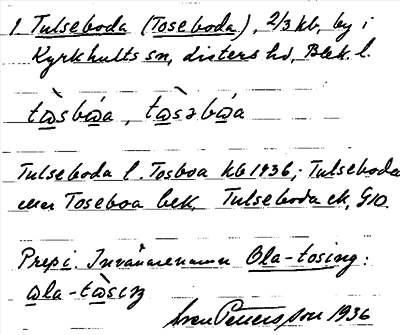 1. Tulseboda (Toseboda), 2/3 kb, by i
Kyrkhults sn, Listers hd, Blek. l.
tὼsbὼa, tὼsəbώa
Tulseboda l. Tosboa kb 1936; Tulseboda
eller Toseboa bek. Tulseboda ek, G10.
Prep i. Invånarenamn Ola-tosing:
ωla-tὼsıŋ
Sven Pettersson 1936